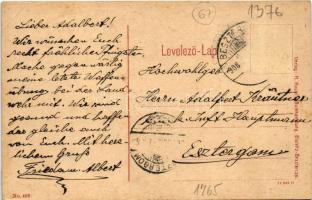 (67)
1376
Lieber Adalbert!
Wir wünschen Euch
recht fröhliche Pfingsten.
Mache gegenwärtig
meine letzte Waffen-
übung bei der Land-
wehr mit. Wir sind
gesund und hoffen
der gleiche auch
von Euch. Mit herz-
lichem Gruß
Albert
Levelező-Lap
Hochwohlgeb.
Herrn Adalbert
k. u. k. Inft. Hauptmann
Esztergom
1765